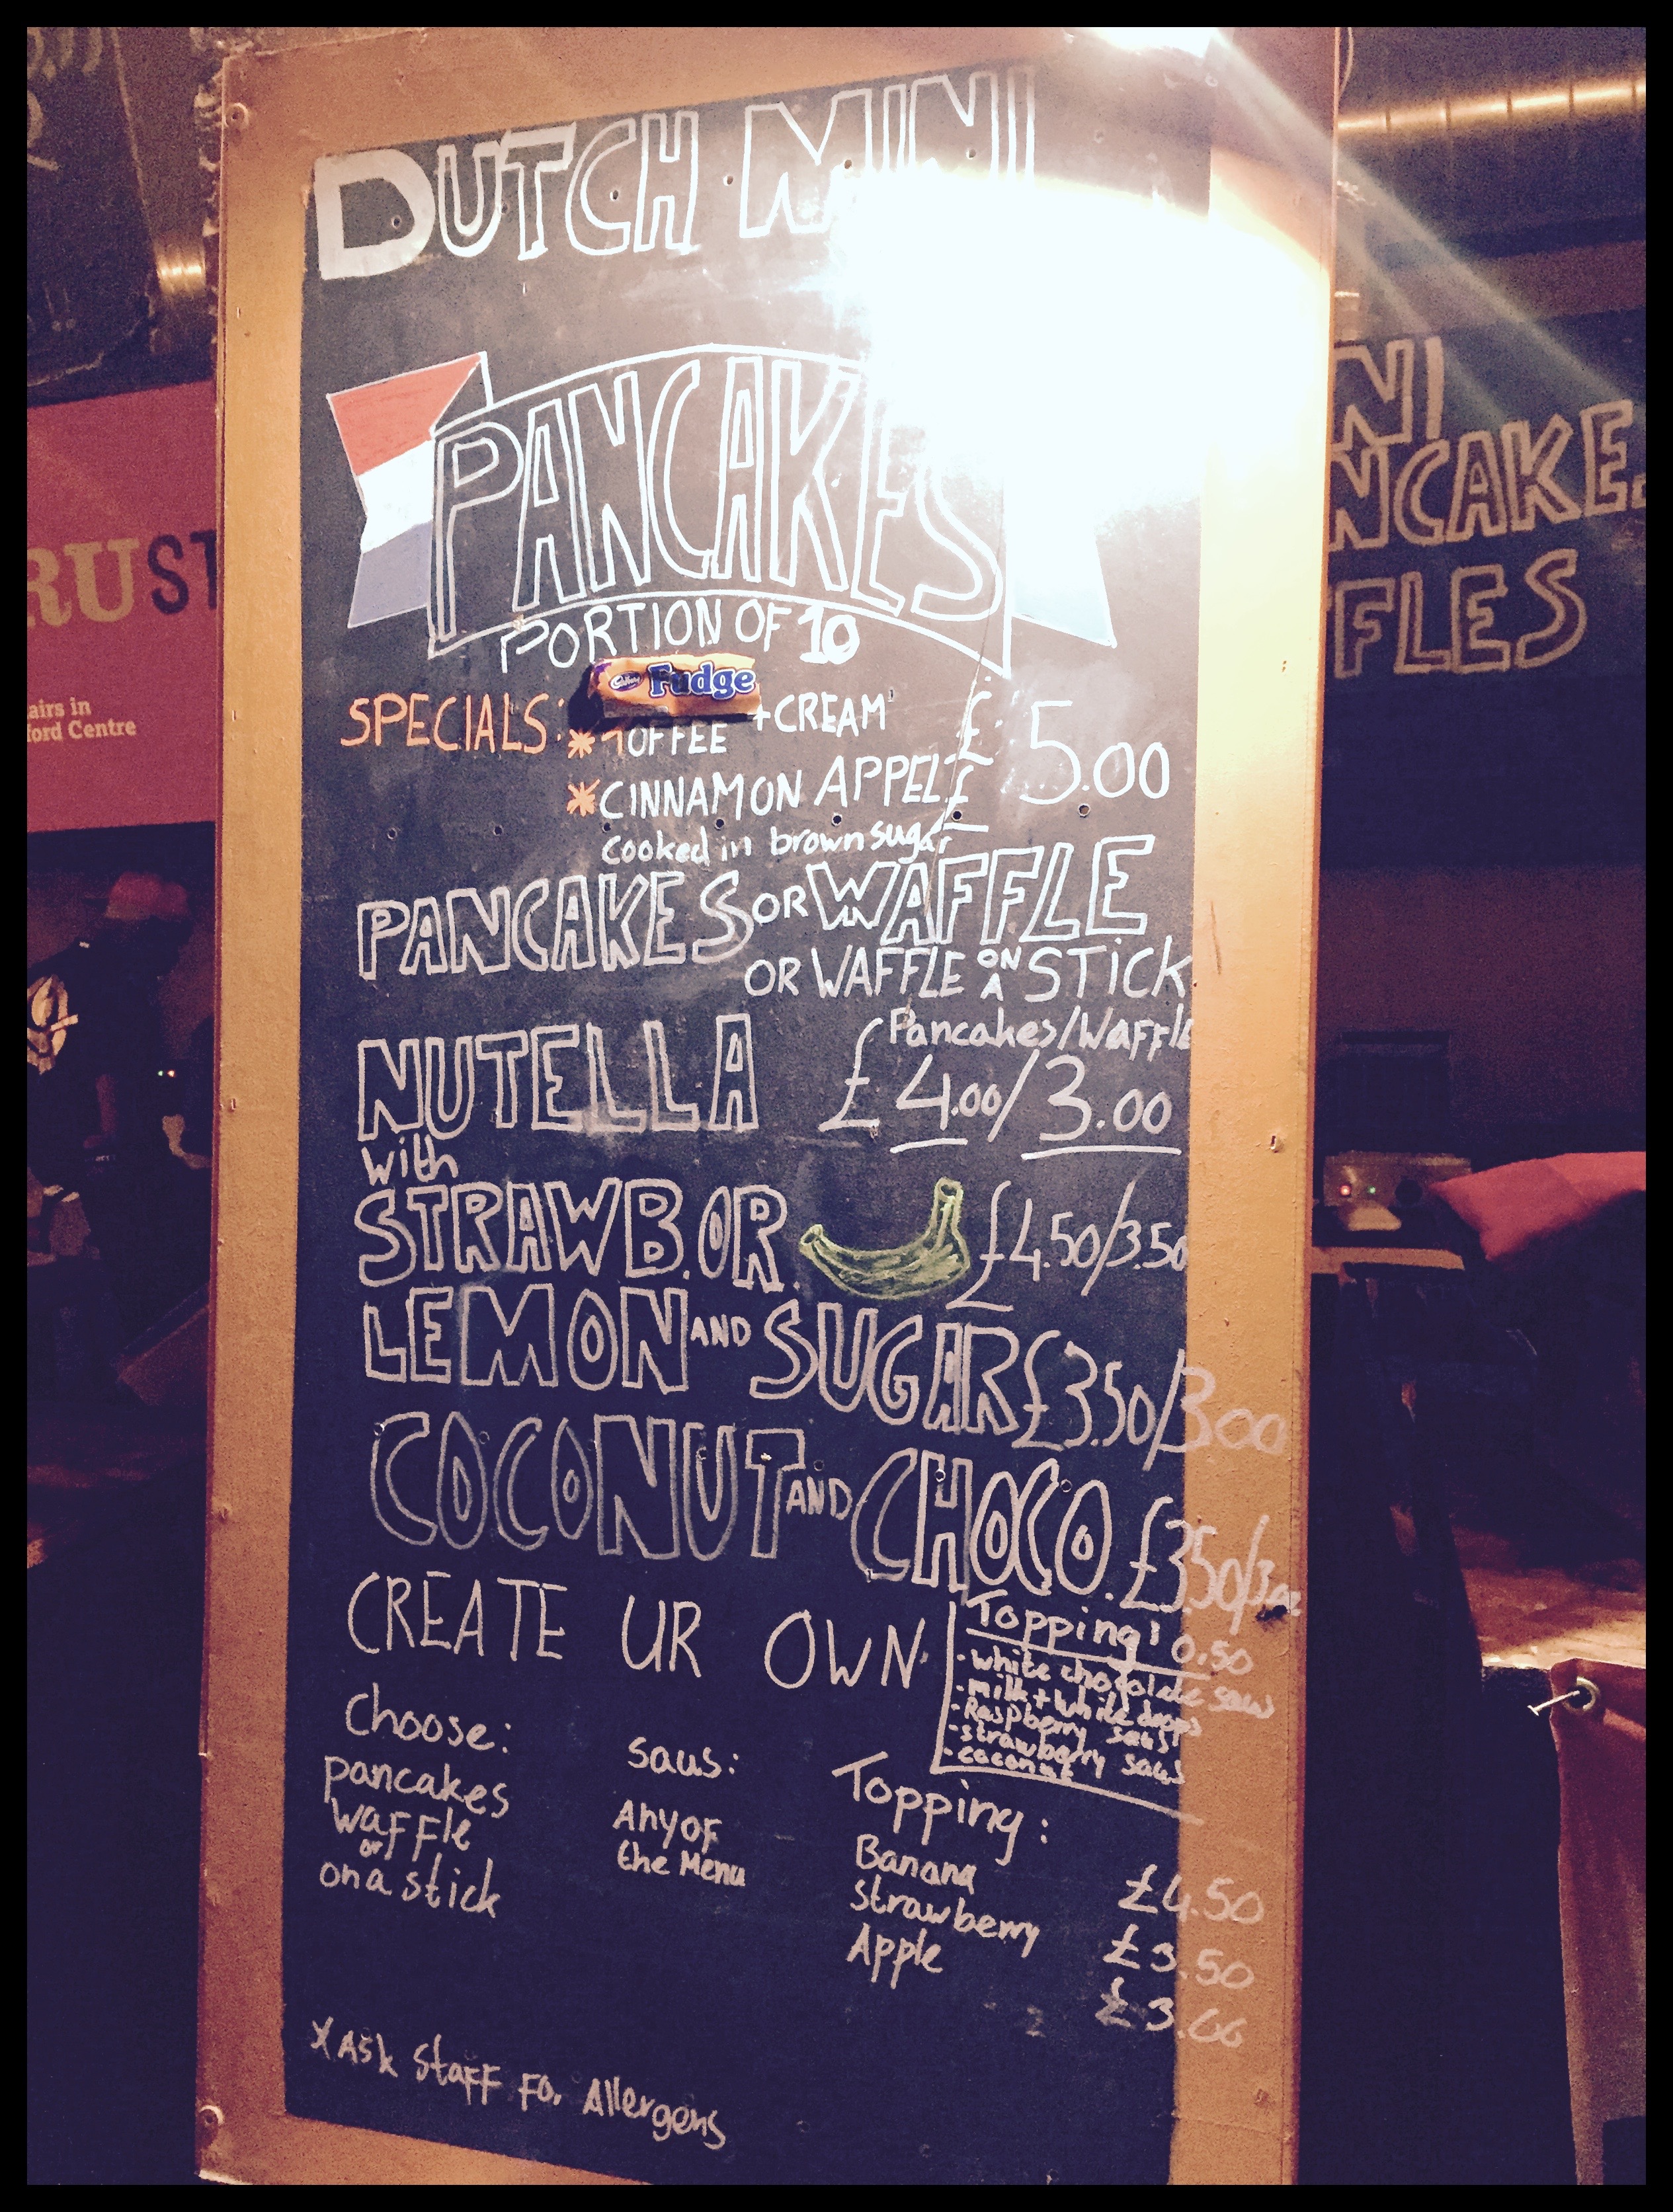 DUTCH MINI
PANCAKES
PORTION OF 10
SPECIALS:
Cadbury Fudge
* TOFFEE +CREAM
* CINNAMON APPEL
cooked in brown sugar
£ 5.00
PANCAKES OR WAFFLE
OR WAFFLE ON A STICK
Pancakes/Waffle
NUTELLA £ 4.00/3.00
with
STRAWB. OR £4.50/3.50
LEMON AND SUGAR £3.50/3.00
COCONUT AND CHOCO. £3.50/3.00
CREATE UR OWN
Topping! 0.50
- white chocolate saus
- milk + white drops
- Raspberry saus
- strawberry saus
- coconut
Choose:
pancakes
waffle
or
on a stick
saus:
Any of
the Menu
Topping:
Banana
strawberry
Apple
£4.50
£3.50
£3.00
x Ask Staff For Allergens
RUST
airs in
ford Centre
NI
NCAKE
FFLES